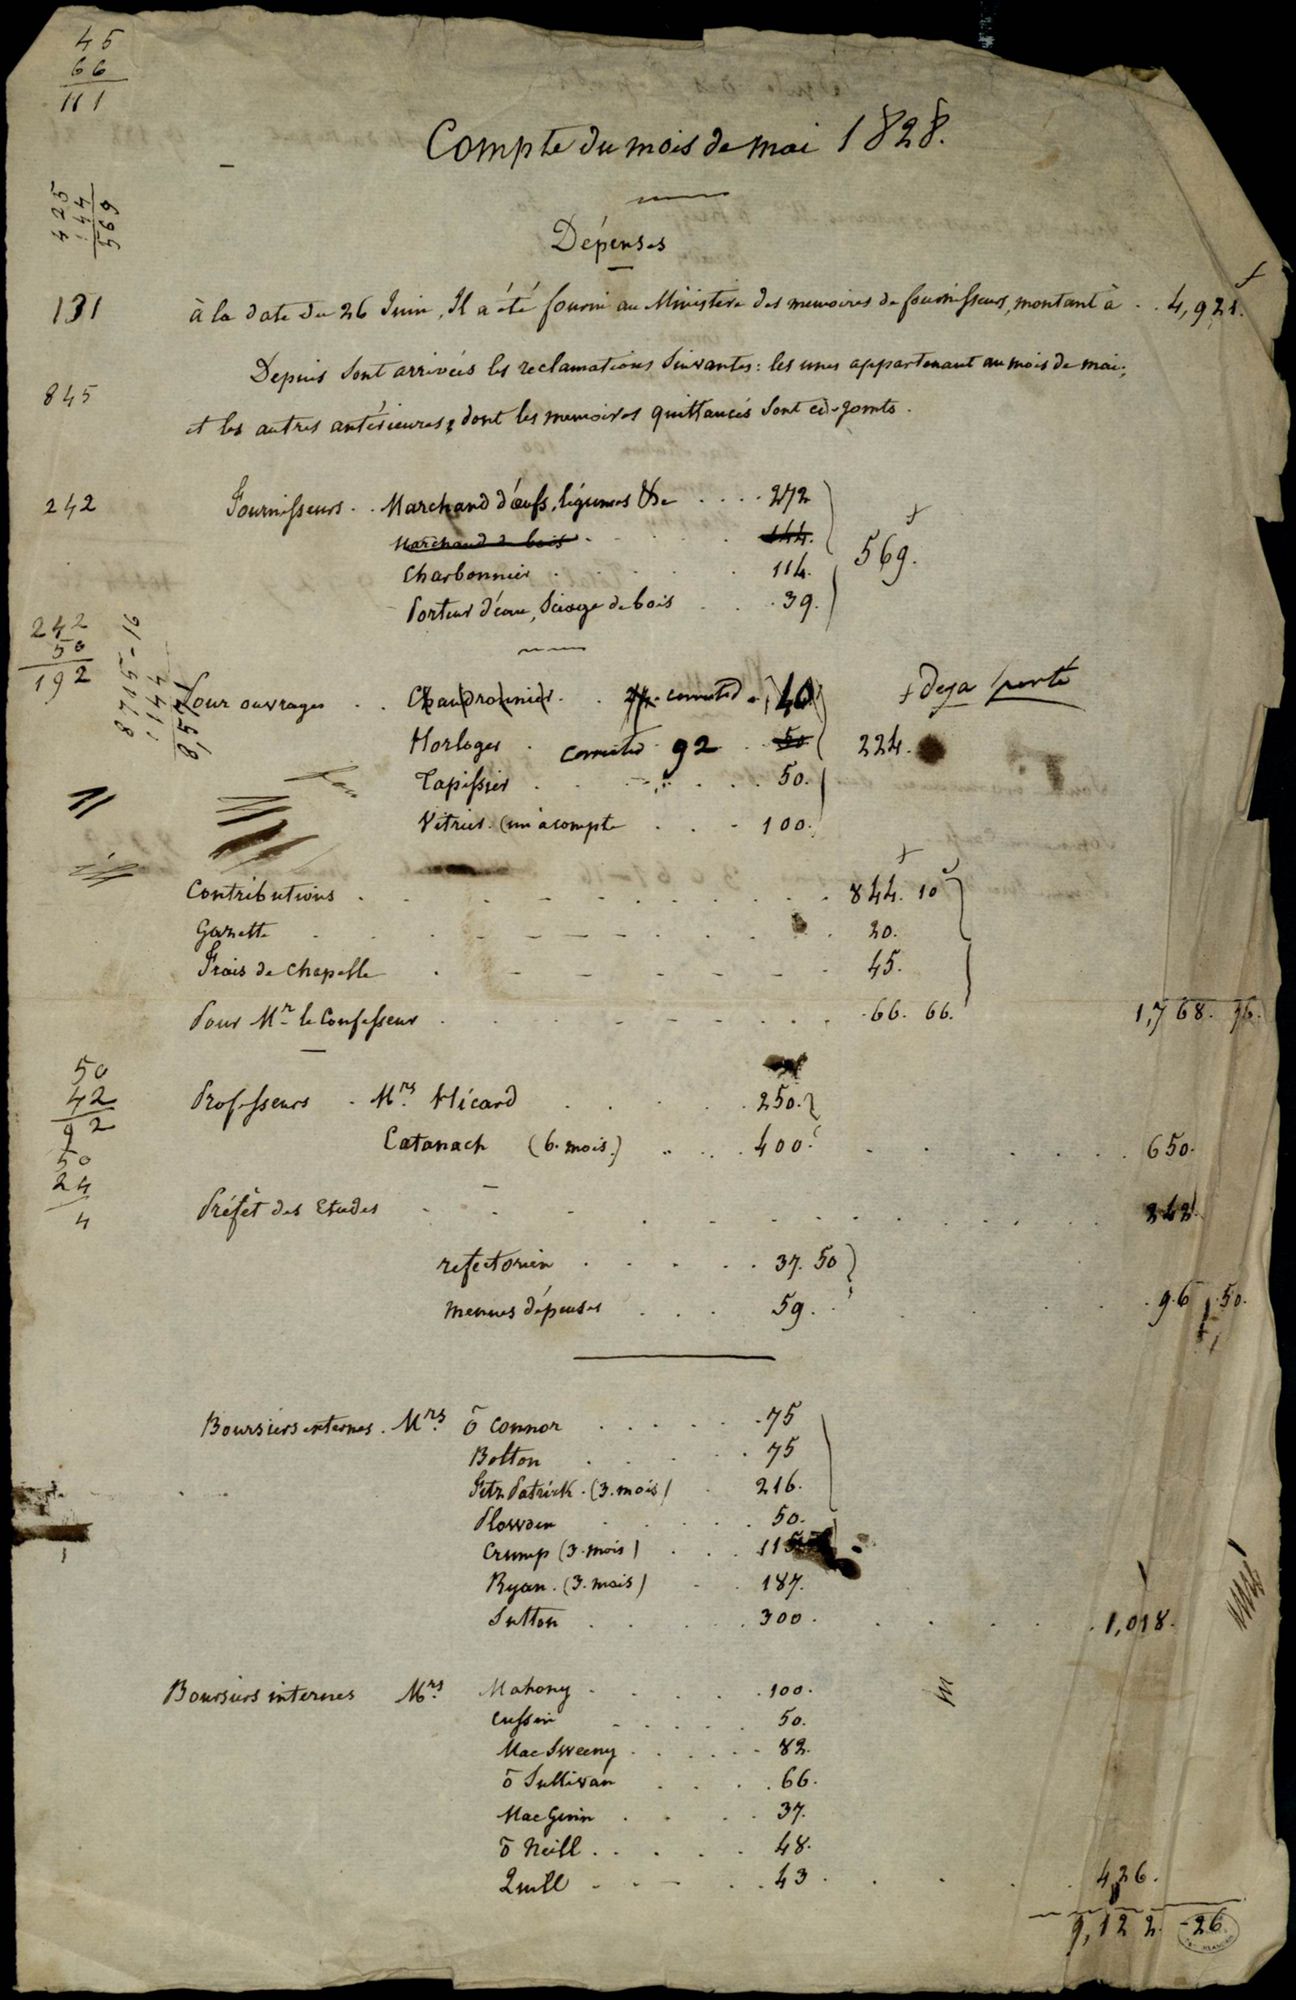 45
66
111
Compte du mois de mai 1828.
425
144
569
Dépenses
131
à la date du 26 Juin, Il a été fourni au Ministere des memoires de fournisseurs, montant à . . 4,921.
Depuis sont arrivées les reclamations suivantes: les unes appartenant au mois de mai;
845
et les autres antérieures; dont les memoires quittancés sont ci-joints.
242
Fournisseurs . . Marchand d'œufs, légumes &c . . . . 272
Marchand de bois . . . . . 144.
569.
Charbonnier . . . . . 114.
Porteur d'eau, Sciage de bois . . . 39.
242
50
192
8715-16
144
8,571
deja porté
Pour ouvrages . . Chaudronnier . . corrected 40
Horloger . corrected 92 . . 50
224.
Tapissier . . . . . 50.
Vitrier. (un àcompte . . . 100.
Contributions . . . . . 844. 10
Gazette . . . . . 20.
Frais de Chapelle . . . . . 45.
Pour Mr le Confesseur . . . . . 66. 66.
1,768. 76.
50
42
92
50
24
4
Professeurs . Mrs. Hicard . . . . . 250.
Catanach (6. mois.) . . . . 400.
650.
Préfêt des Etudes . . . . . 242.
refectorier . . . . . 37. 50
menues dépenses . . . 59.
96. 50.
Boursiers externes . Mrs. ō Connor . . . . . 75
Bolton . . . . . 75
Fitz Patrick . (3. mois) . 216.
Plowden . . . . . 50.
Crump (3. mois) . . . 115
Ryan. (3. mois) . . 187.
Sutton . . . . . 300.
1,018.
Boursiers internes Mrs. Mahony . . . . . 100.
Cussin . . . . . 50.
Mac Sweeny . . . . . 82.
ō Sullivan . . . . 66.
Mac Ginin . . . . 37.
ō Neill . . . . . 48.
Quill . . . . . 43
426.
9,122. -26